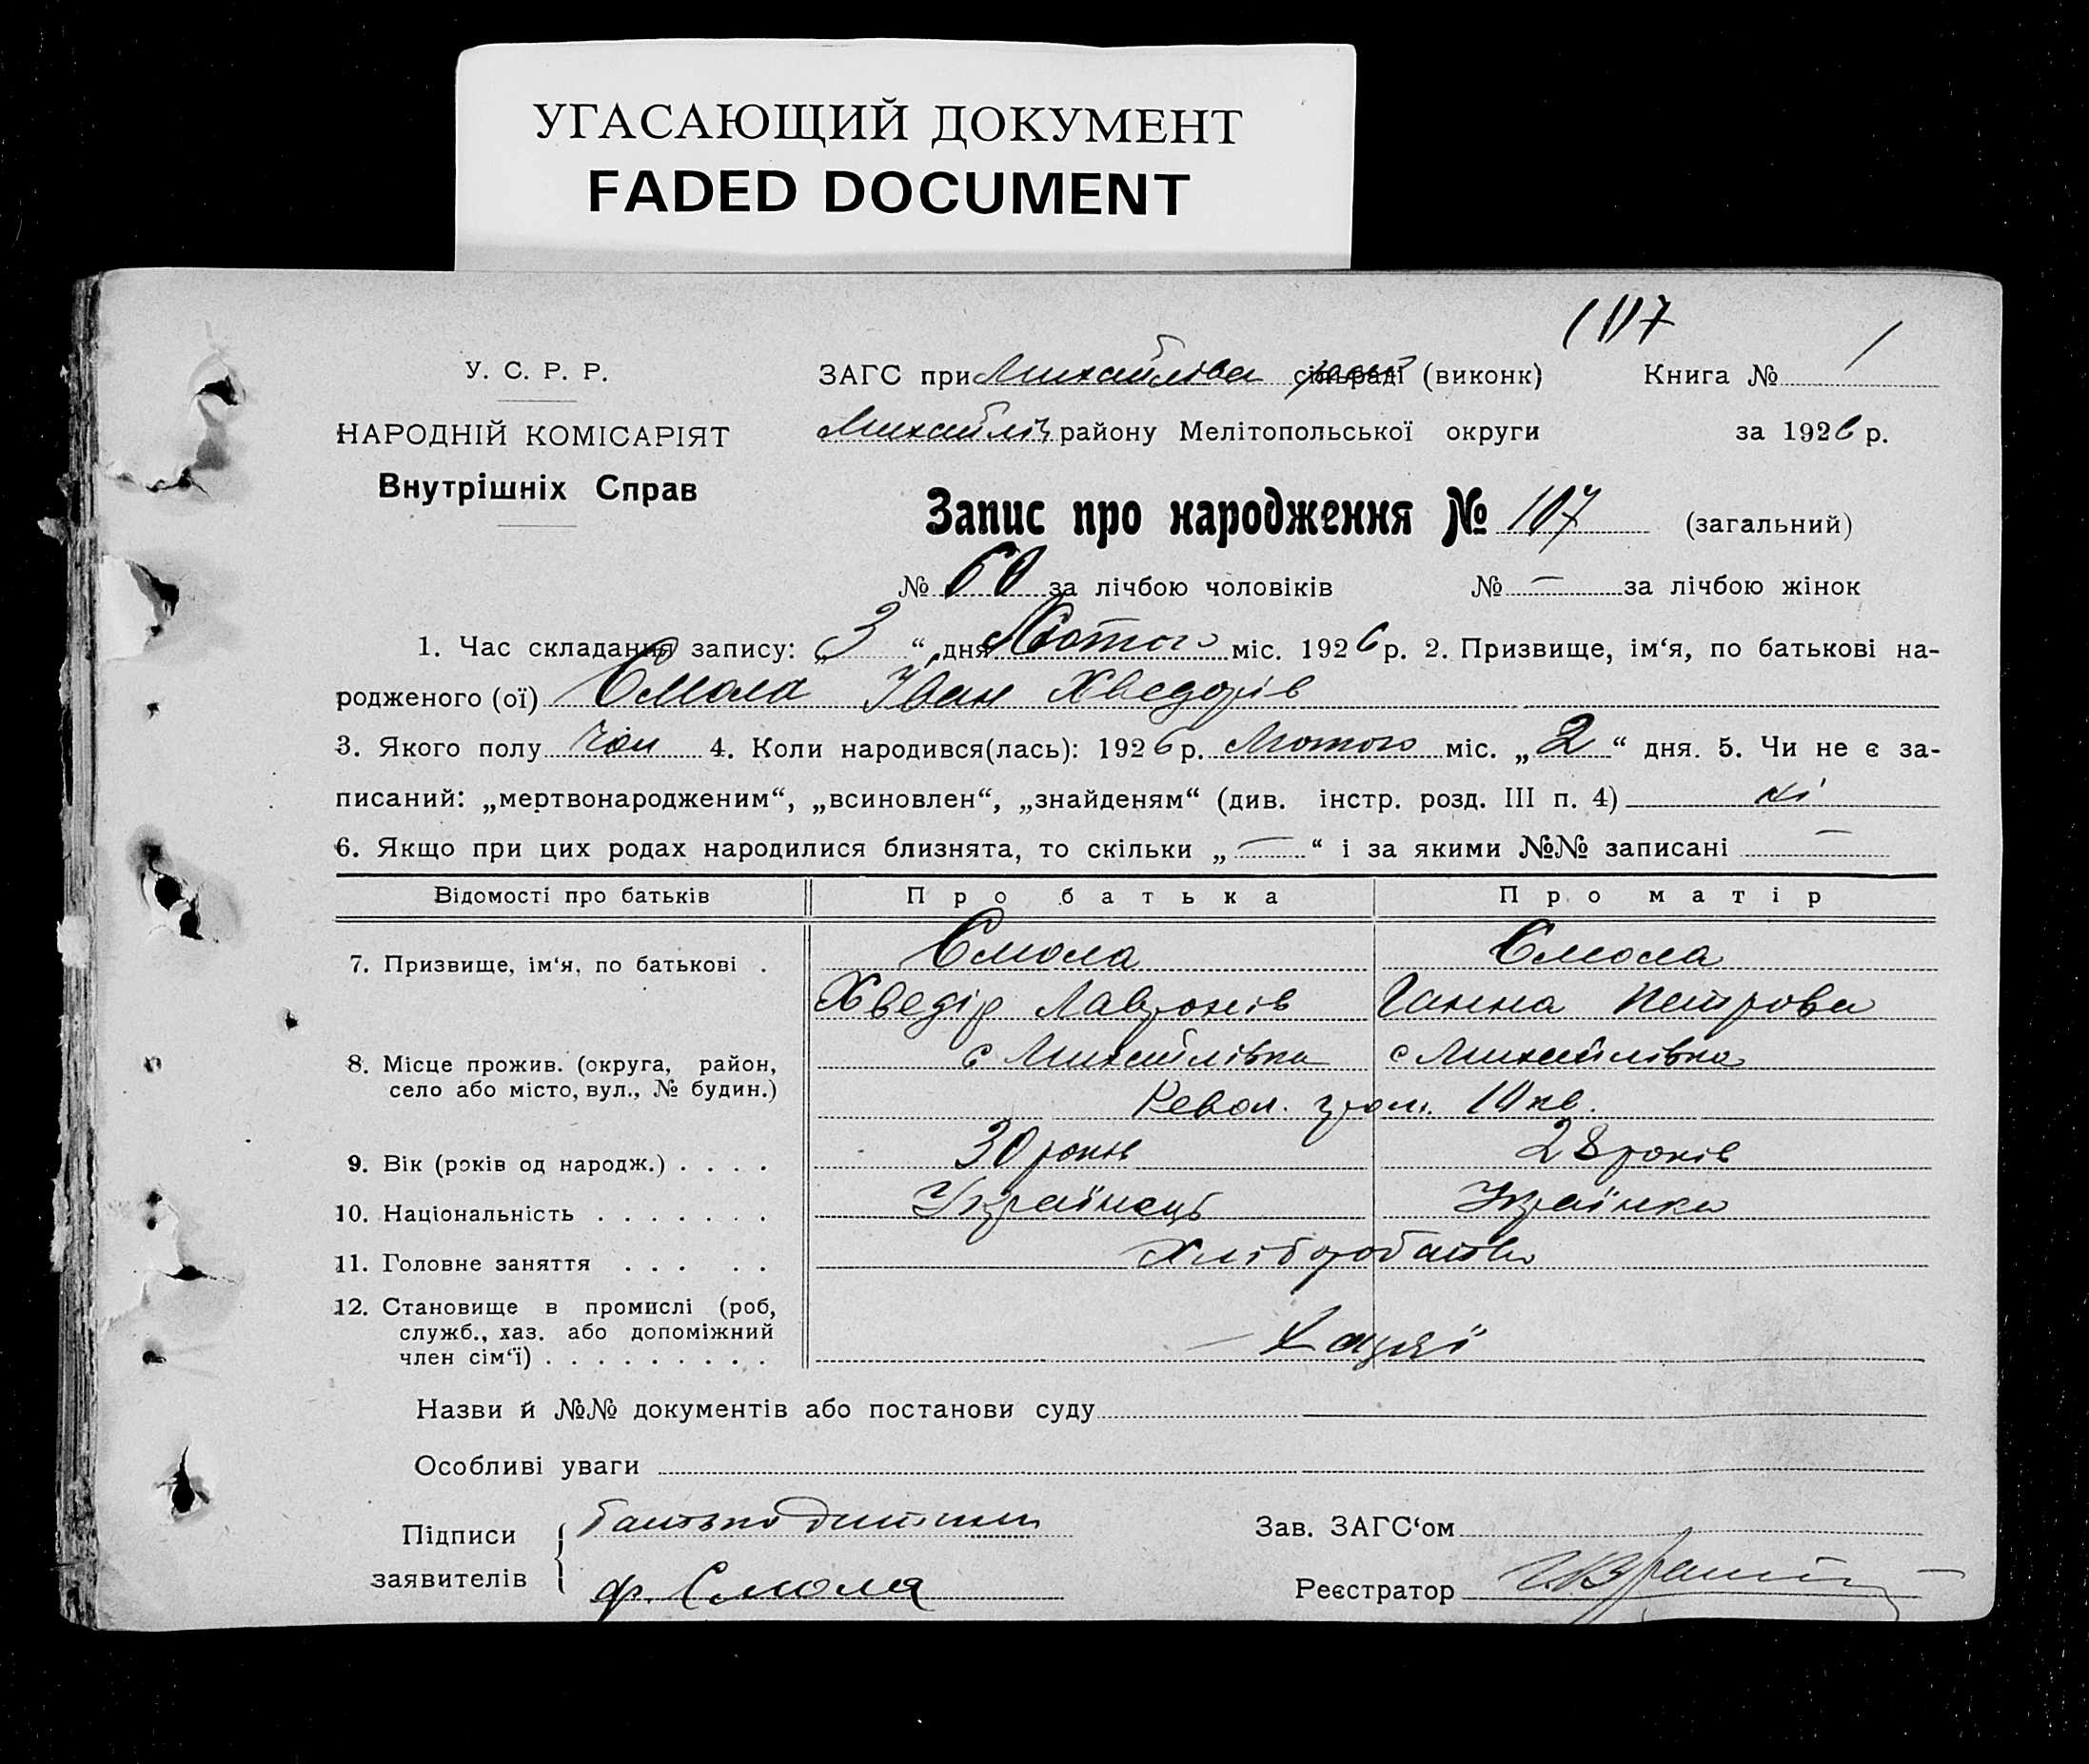 УГАСАЮЩИЙ ДОКУМЕНТ
FADED DOCUMENT
107
У. С. Р. Р.
ЗАГС при Михайлівс сільраді (виконк)
Книга № 1
НАРОДНІЙ КОМІСАРІЯТ
Михайлів району Мелітопольської округи
за 1926 р.
Внутрішніх Справ
Запис про народження № 107 (загальний)
№ 60 за лічбою чоловіків № — за лічбою жінок
1. Час складання запису: „3“ дня Лютого міс. 1926 р. 2. Призвище, ім‘я, по батькові на-
родженого (ої) Смола Іван Хведорів
3. Якого полу чол 4. Коли народився(лась): 1926 р. Лютого міс. „2“ дня. 5. Чи не є за-
писаний: „мертвонародженим“, „всиновлен“, „знайденям“ (див. інстр. розд. III п. 4) ні
6. Якщо при цих родах народилися близнята, то скільки „—“ і за якими №№ записані —
Відомості про батьків Про батька Про матір
7. Призвище, ім‘я, по батькові . Смола Смола
Хведір Лавронів Ганна Петрова
8. Місце прожив. (округа, район, с Михайлівка с Михайлівка
село або місто, вул., № будин.) Револ. гром. 10 кв.
9. Вік (років од народж.) . . . . 30 років 28 років
10. Національність . . . . . . . Українець Українка
11. Головне заняття . . . . . Хліборобство
12. Становище в промислі (роб,
служб., хаз. або допоміжний
член сім‘ї) . . . . . . . . . Хазяї
Назви й №№ документів або постанови суду
Особливі уваги
Підписи батько дитини Зав. ЗАГС‘ом
заявителів ф. Смола Реєстратор